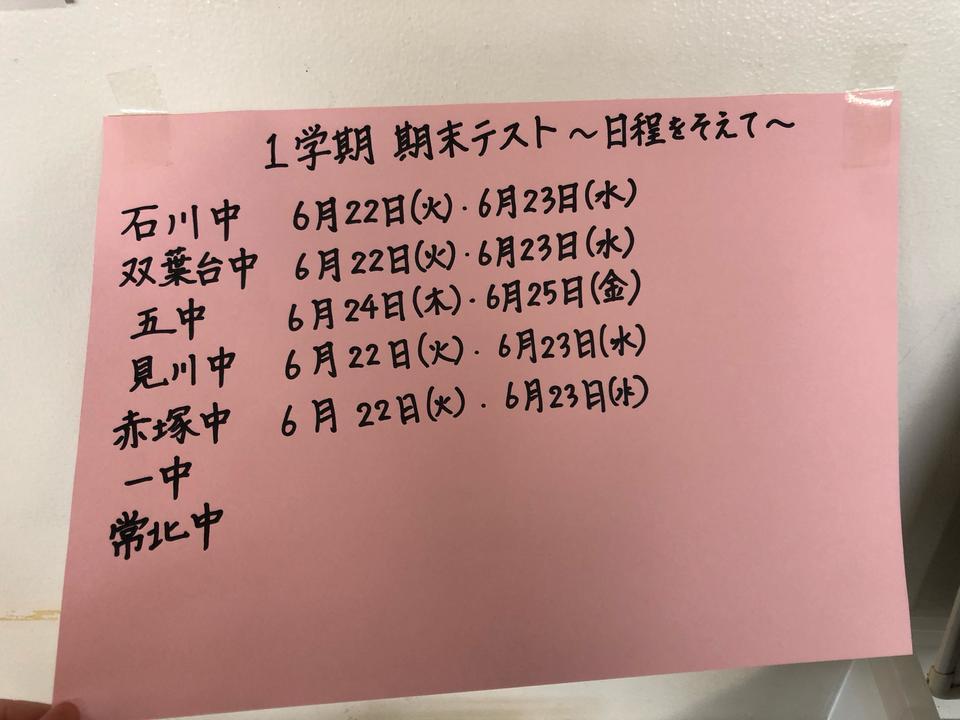 1学期 期末テスト～日程をそえて～
石川中 6月22日(火)・6月23日(水)
双葉台中 6月22日(火)・6月23日(水)
五中 6月24日(木)・6月25日(金)
見川中 6月22日(火)・6月23日(水)
赤塚中 6月22日(火)・6月23日(水)
一中
常北中